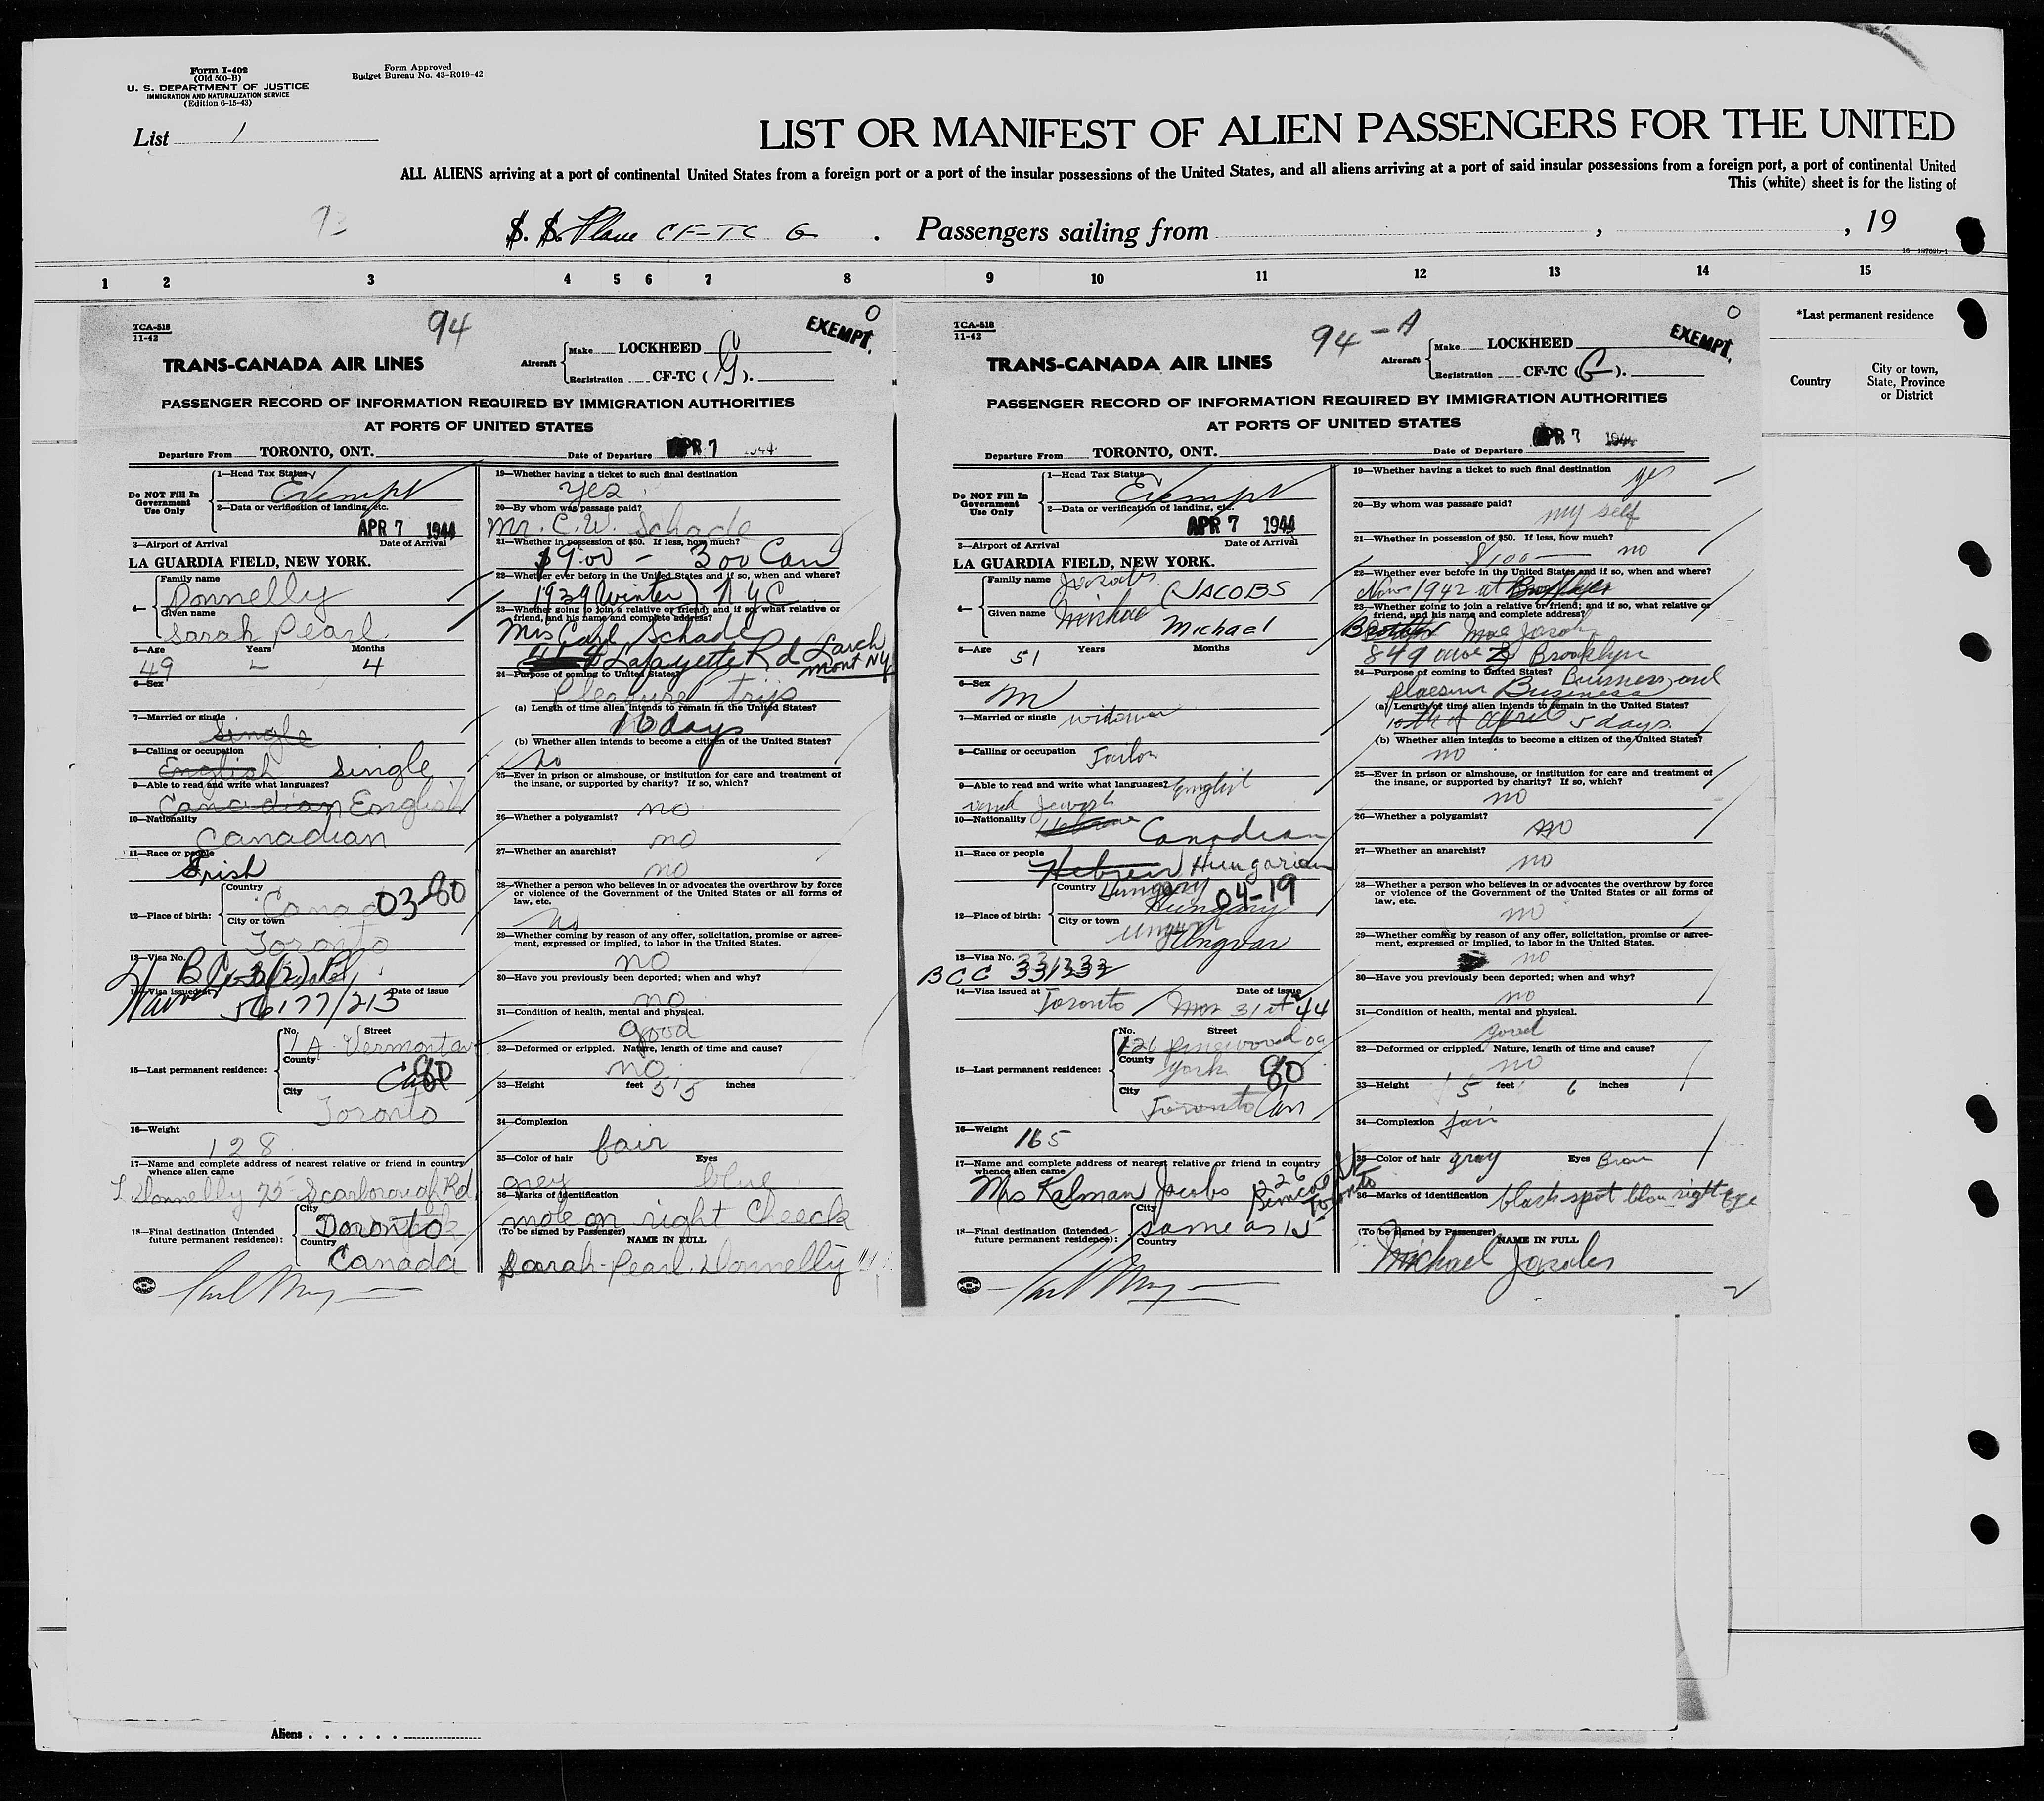 Form I-402
(Old 500-B)
U. S. DEPARTMENT OF JUSTICE
IMMIGRATION AND NATURALIZATION SERVICE
(Edition 6-15-43)
Form Approved
Budget Bureau No. 43-R019-42
List 1
LIST OR MANIFEST OF ALIEN PASSENGERS FOR THE UNITED
ALL ALIENS arriving at a port of continental United States from a foreign port or a port of the insular possessions of the United States, and all aliens arriving at a port of said insular possessions from a foreign port, a port of continental United
This (white) sheet is for the listing of
S. S. Plane CF-TC G . Passengers sailing from , , 19
1 2 3 4 5 6 7 8 9 10 11 12 13 14 15
*Last permanent residence
Country
City or town,
State, Province
or District
TCA-518
11-42
94
EXEMPT.
O
TRANS-CANADA AIR LINES
Aircraft
Make LOCKHEED
Registration CF-TC ( G ).
PASSENGER RECORD OF INFORMATION REQUIRED BY IMMIGRATION AUTHORITIES
AT PORTS OF UNITED STATES
Departure From TORONTO, ONT. Date of Departure APR 7 1944
Do NOT Fill In
Government
Use Only
1—Head Tax Status
Exempt
2—Data or verification of landing, etc.
APR 7 1944
3—Airport of Arrival Date of Arrival
LA GUARDIA FIELD, NEW YORK.
4—
Family name
Donnelly
Given name
Sarah Pearl.
5—Age Years Months
49 - 4
6—Sex
7—Married or single
Single
8—Calling or occupation
English Single
9—Able to read and write what languages?
Canadian English
10—Nationality
Canadian
11—Race or people
Irish
12—Place of birth:
Country
Canad 03-80
City or town
Toronto
13—Visa No.
14—Visa issued at Date of issue
56177/213
15—Last permanent residence:
No. Street
7A Vermont av
County
Can 80
City
Toronto
16—Weight
128
17—Name and complete address of nearest relative or friend in country
whence alien came
L Donnelly 75 Scarborough Rd.
18—Final destination (Intended
future permanent residence):
City
Toronto
Country
Canada
19—Whether having a ticket to such final destination
yes
20—By whom was passage paid?
Mr. C. W. Schade
21—Whether in possession of $50. If less, how much?
$9.00 - 300 Can
22—Whether ever before in the United States and if so, when and where?
1939 (Winter) N Y C
23—Whether going to join a relative or friend; and if so, what relative or
friend, and his name and complete address?
Mrs Carl Schade
Lafayette Rd Larch
mont NY
24—Purpose of coming to United States?
Pleasure trip
(a) Length of time alien intends to remain in the United States?
10 days
(b) Whether alien intends to become a citizen of the United States?
no
25—Ever in prison or almshouse, or institution for care and treatment of
the insane, or supported by charity? If so, which?
no
26—Whether a polygamist?
no
27—Whether an anarchist?
no
28—Whether a person who believes in or advocates the overthrow by force
or violence of the Government of the United States or all forms of
law, etc.
no
29—Whether coming by reason of any offer, solicitation, promise or agree-
ment, expressed or implied, to labor in the United States.
no
30—Have you previously been deported; when and why?
no
31—Condition of health, mental and physical.
good
32—Deformed or crippled. Nature, length of time and cause?
no
33—Height feet 5'5 inches
34—Complexion
fair
35—Color of hair Eyes
grey blue
36—Marks of identification
mole on right Cheeck
(To be signed by Passenger) NAME IN FULL
Sarah Pearl Donnelly
TCA-518
11-42
94-A
EXEMPT.
O
TRANS-CANADA AIR LINES
Aircraft
Make LOCKHEED
Registration CF-TC ( G ).
PASSENGER RECORD OF INFORMATION REQUIRED BY IMMIGRATION AUTHORITIES
AT PORTS OF UNITED STATES
Departure From TORONTO, ONT. Date of Departure APR 7 1944
Do NOT Fill In
Government
Use Only
1—Head Tax Status
Exempt
2—Data or verification of landing, etc.
APR 7 1944
3—Airport of Arrival Date of Arrival
LA GUARDIA FIELD, NEW YORK.
4—
Family name Jacobs (JACOBS
Given name Michael
5—Age 51 Years Months
6—Sex
M
7—Married or single widower
8—Calling or occupation Tailor
9—Able to read and write what languages? English
and Jewish
10—Nationality Hebrew Canadian
11—Race or people
Hebrew Hungarian
12—Place of birth:
Country Hungary 04-19
Hungary
City or town
Ungvar
13—Visa No. 331232
BCC 331232
14—Visa issued at Date of issue
Toronto / Mar 31st 44
15—Last permanent residence:
No. Street
126 Pinewood
County
York 80
City
Toronto Can
16—Weight 165
17—Name and complete address of nearest relative or friend in country
whence alien came
Mrs Kalman Jacobs 226 Simcoe St
Toronto
18—Final destination (Intended
future permanent residence):
City
same as 15
Country
19—Whether having a ticket to such final destination
yes
20—By whom was passage paid?
my self
21—Whether in possession of $50. If less, how much?
$100 — no
22—Whether ever before in the United States and if so, when and where?
Nov 1942 at
23—Whether going to join a relative or friend; and if so, what relative or
friend, and his name and complete address?
Brother
849 Brooklyn
24—Purpose of coming to United States? Business and
Business
(a) Length of time alien intends to remain in the United States?
5 days.
(b) Whether alien intends to become a citizen of the United States?
no
25—Ever in prison or almshouse, or institution for care and treatment of
the insane, or supported by charity? If so, which?
no
26—Whether a polygamist?
no
27—Whether an anarchist?
no
28—Whether a person who believes in or advocates the overthrow by force
or violence of the Government of the United States or all forms of
law, etc.
no
29—Whether coming by reason of any offer, solicitation, promise or agree-
ment, expressed or implied, to labor in the United States.
no
30—Have you previously been deported; when and why?
no
31—Condition of health, mental and physical.
good
32—Deformed or crippled. Nature, length of time and cause?
no
33—Height 5 feet 6 inches
34—Complexion fair
35—Color of hair gray Eyes Brow
36—Marks of identification black spot blow right Eye
(To be signed by Passenger) NAME IN FULL
Michael Jacobs
Aliens